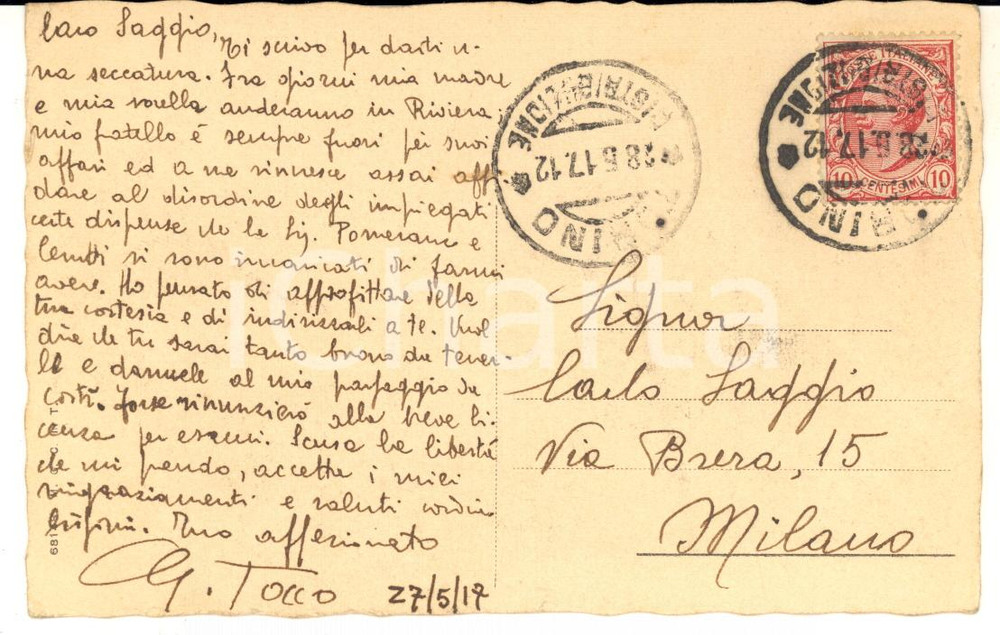 Caro Saggio, Ti scrivo per darti u-
na seccatura. Fra giorni mia madre
e mia sorella anderanno in Riviera
mio fratello è sempre fuori pei suoi
affari ed a me rincresce assai affi
dare al disordine degli impiegati
certe dispense che la Sig. Pomeranc e
si sono incaricati di farmi
avere. Ho pensato di approfittare della
tua cortesia e di indirizzali a te. Vuol
dire che tu sarai tanto buono da tener-
le e darmele al mio passaggio da
costì. Forse rinunzierò alla breve li-
cenza per esami. Scusa la libertà
che mi prendo, accetta i miei
ringraziamenti e saluti cordia
lissimi. Tuo affezionato
G. Tocco 27/5/17
681
TORINO
DISTRIBUZIONE
28.5.17.12
TORINO
DISTRIBUZIONE
28.5.17.12
POSTE ITALIANE
10 CENTESIMI 10
Signor
Carlo Saggio
Via Brera, 15
Milano
iCharta